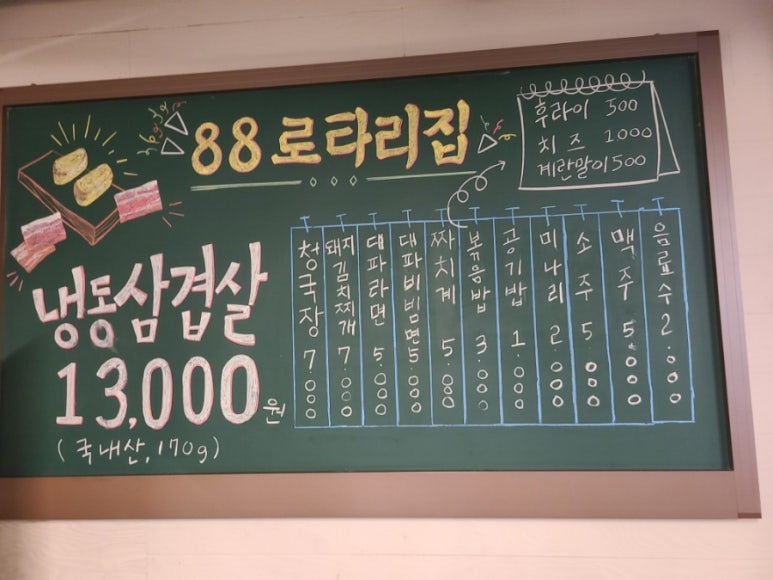 88로타리집
후라이 500
치즈 1000
계란말이 500
냉동삼겹살
13,000원
(국내산, 170g)
청국장 7.000
돼지김치찌개 7.000
대파라면 5.000
대파비빔면 5.000
짜치계 5.000
볶음밥 3.000
공기밥 1.000
미나리 2.000
소주 5.000
맥주 5.000
음료수 2.000